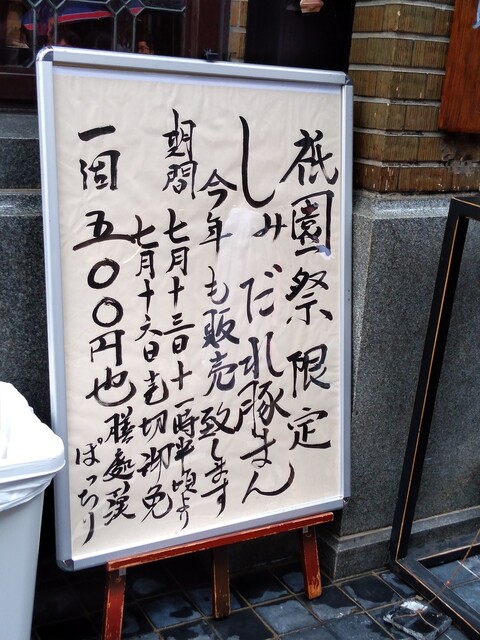 祇園祭限定
しみだれ豚まん
今年も販売致します
期間 七月十三日十一時半頃より
七月十六日 売切御免
一個 五〇〇円也
膳處漢
ぽっちり